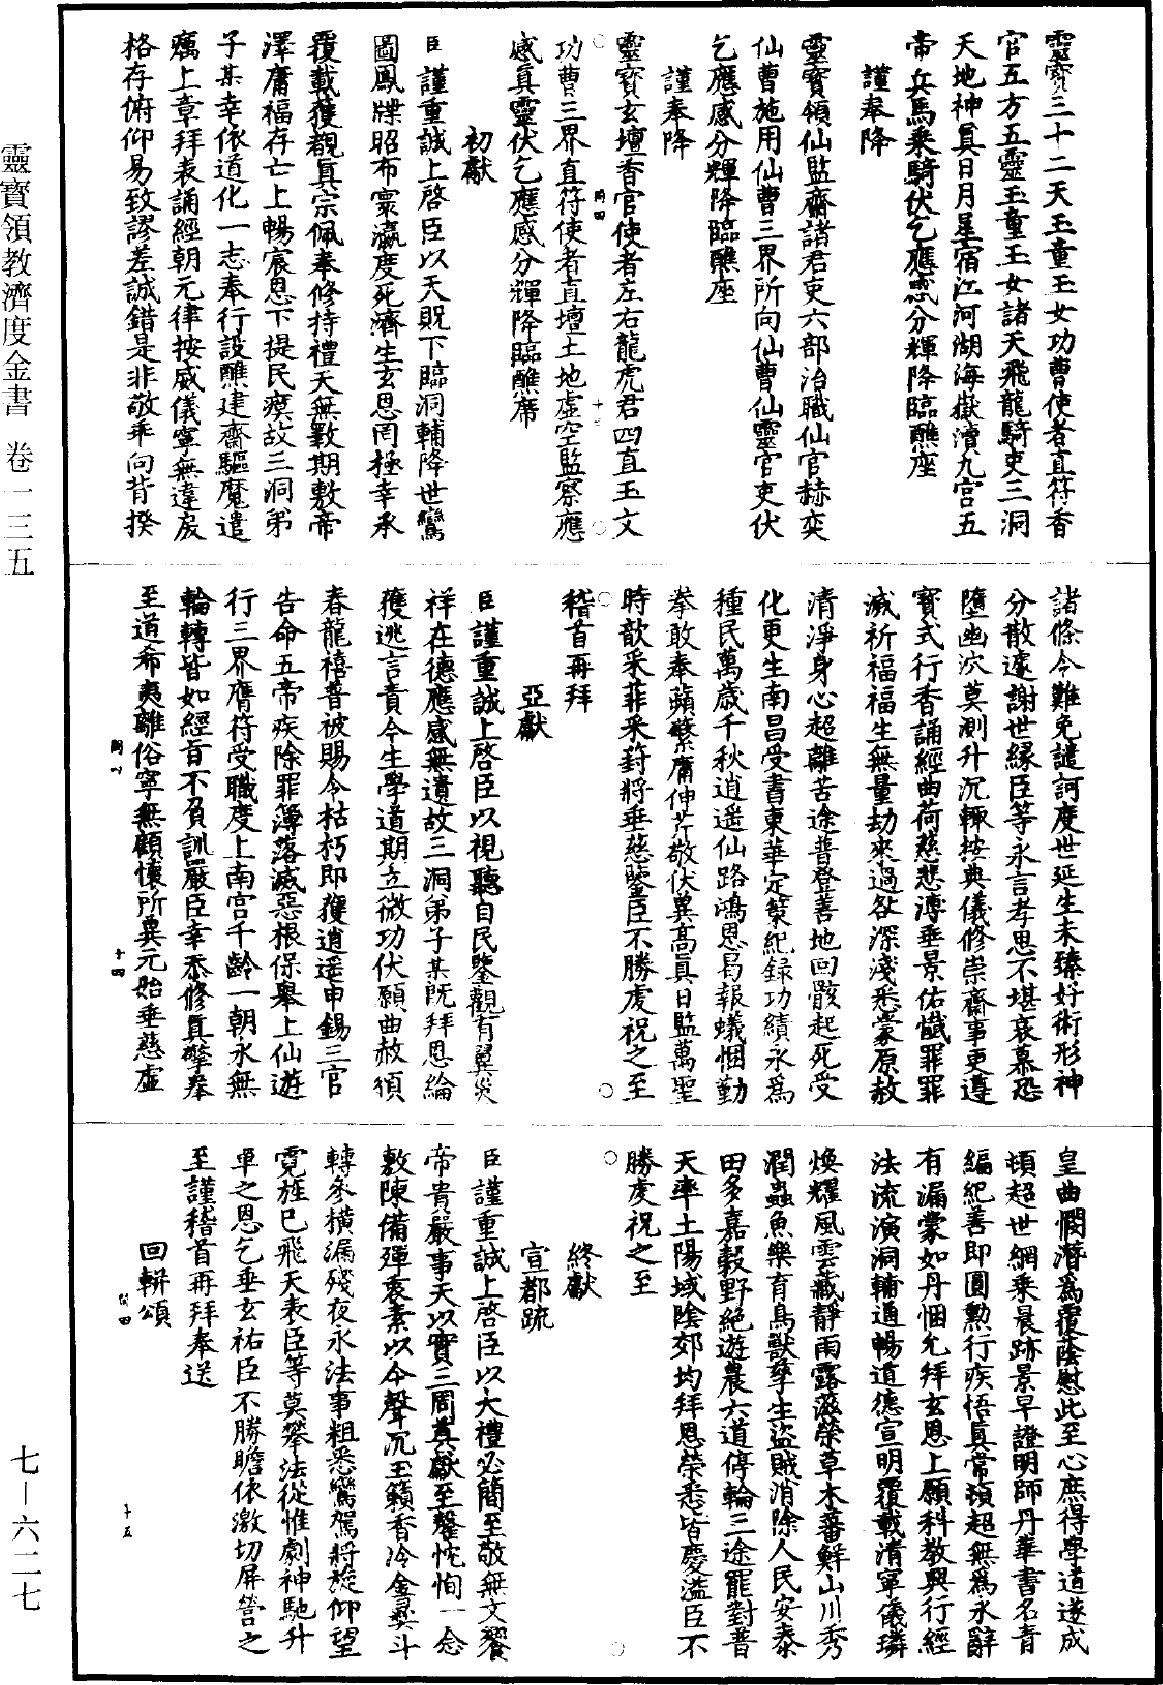 靈寶三十二天玉童玉女功曹使者直符香
官五方五靈玉童玉女諸天飛龍騎吏三洞
天地神眞日月星宿江河湖海嶽瀆九宮五
帝兵馬乘騎伏乞應感分輝降臨醮座
謹奉降
靈寶領仙監齋諸君吏六部治職仙官赫奕
仙曹施用仙曹三界所向仙曹仙靈官吏伏
乞應感分輝降臨醮座
謹奉降
靈寶玄壇香官使者左右龍虎君四直玉文
功曹三界直符使者直壇土地虛空監察應
感眞靈伏乞應感分輝降臨醮席
初獻
臣謹重誠上啓臣以天貺下臨洞輔降世鸞
圖鳳牒昭布寰瀛度死濟生玄恩罔極幸承
覆載獲覩眞宗佩奉修持禮天無斁期敷帝
澤庸福存亡上暢宸恩下提民瘼故三洞弟
子某幸依道化一志奉行設醮建齋驅魔遣
癘上章拜表誦經朝元律按威儀寧無違戾
格存俯仰易致謬差誠錯是非敬乖向背揆
諸條令難免譴訶度世延生未臻好術形神
分散遽謝世緣臣等永言孝思不堪哀慕恐
墮幽冗莫測升沉輒按典儀修崇齋事更遵
寶式行香誦經曲荷慈悲溥垂景佑懺罪罪
滅祈福福生無量劫來過咎深淺悉蒙原赦
清淨身心超離苦途普登善地回骸起死受
化更生南昌受書東華定籙紀錄功績永爲
種民萬歲千秋逍遙仙路鴻恩曷報蟻悃勤
拳敢奉蘋蘩庸伸芹敬伏冀高眞日監萬聖
時歆采菲采葑將垂慈鑒臣不勝虔祝之至
稽首再拜
亞獻
臣謹重誠上啓臣以視聽自民鑒觀有翼災
祥在德應感無遺故三洞弟子某旣拜恩綸
獲逃言責今生學道期立微功伏願曲赦須
春龍禧普被賜令枯朽即獲逍遥申錫三官
告命五帝疾除罪簿落滅惡根保舉上仙遊
行三界膺符受職度上南宫千齡一朝永無
輪轉皆如經旨不負訓嚴臣幸忝修眞擎拳
至道希夷離俗寧無顧懷所冀元始垂慈虛
皇曲憫潛爲覆蔭慰此至心庶得學道遂成
頓超世網乘晨跡景早證明師丹華書名青
編紀善即圓勲行疾悟眞常頓超無爲永辭
有漏蒙如丹悃允拜玄恩上願科教興行經
法流演洞輔通暢道德宣明覆載清寧儀璘
煥耀風雲藏靜雨露滋榮草木蕃鮮山川秀
潤蟲魚樂育鳥獸孳生盜賊消除人民安泰
田多嘉穀野絕遊農六道停輪三途罷對普
天率土陽域陰郊均拜恩榮悉皆慶溢臣不
勝虔祝之至
終獻
宣都疏
臣謹重誠上啓臣以大禮必簡至敬無文饗
帝貴嚴事天以實三周奠獻至罄忱恂一念
敷陳備殫衷素以今聲沉玉籟香冷金彝斗
轉參橫漏殘夜永法事粗悉鸞駕將旋仰望
霓旌已飛天表臣等莫攀法從惟劇神馳升
車之恩乞垂玄祐臣不勝瞻依激切屏營之
至謹稽首再拜奉送
回軿頌
靈寶領教濟度金書 卷一三五
七－六二七